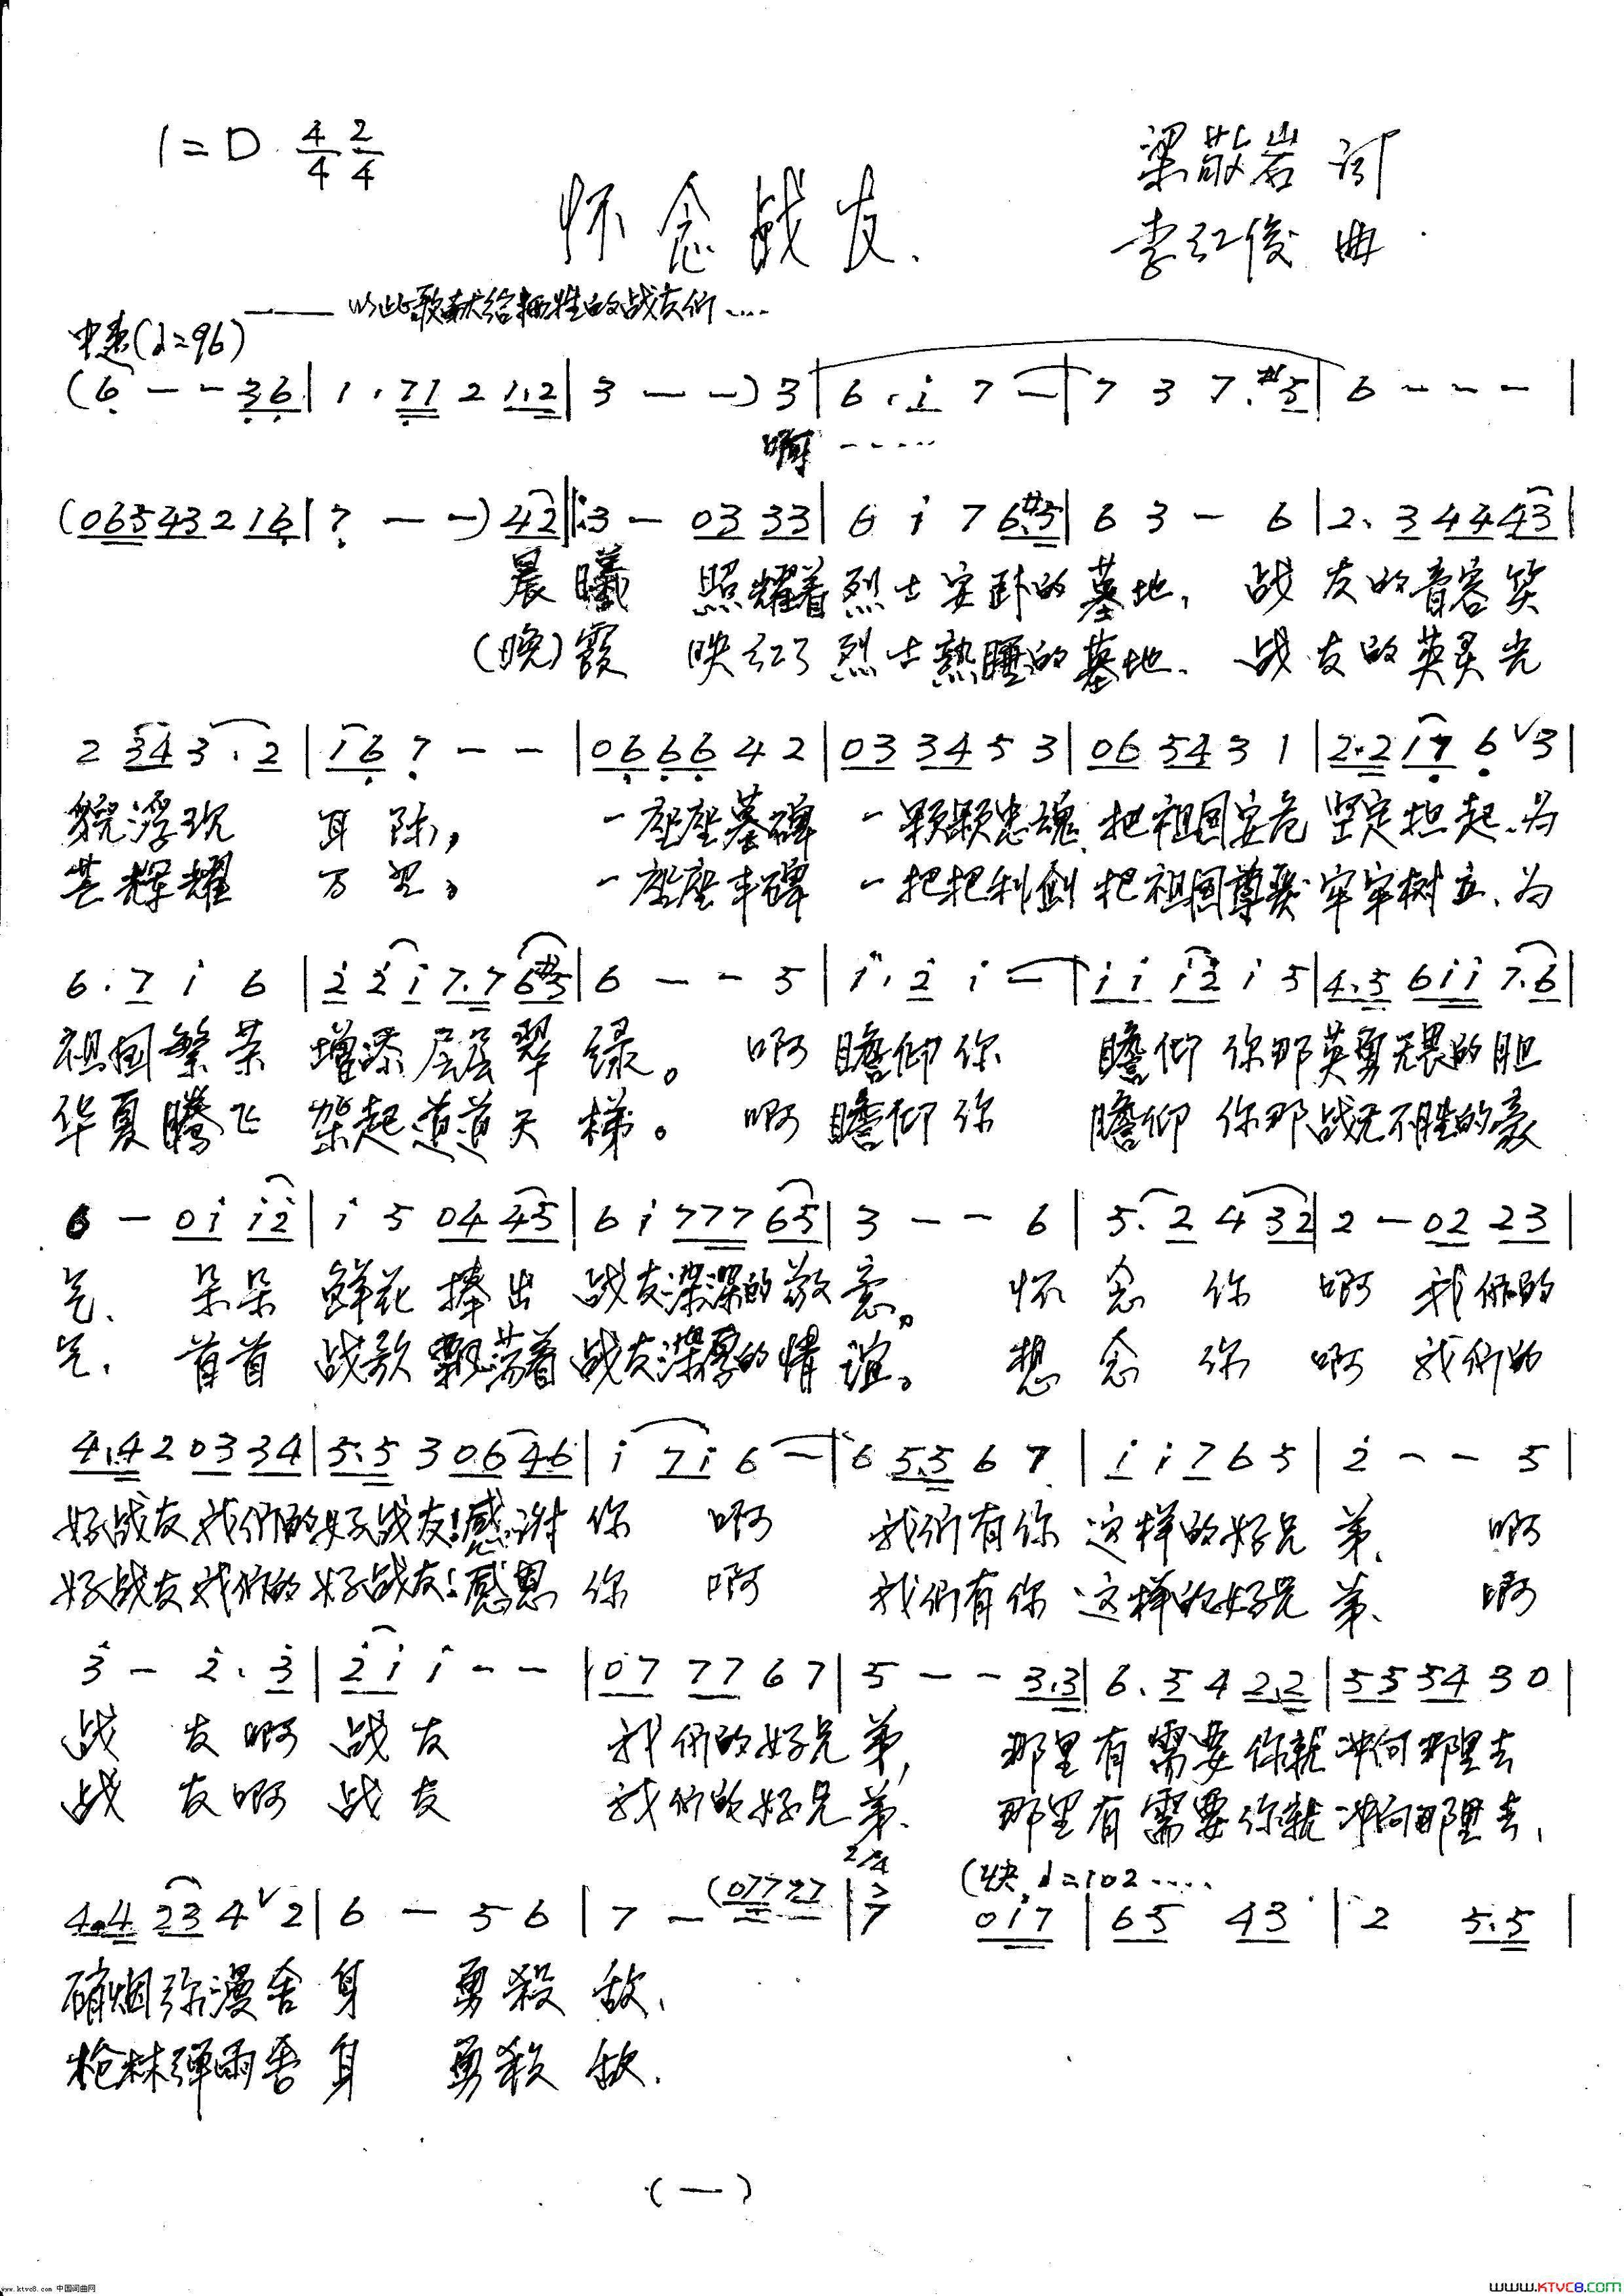 1=D 4/4 2/4
梁敬岩 词
怀念战友
李红俊 曲
——以此歌献给牺牲的战友们....
中速(♩=96)
(6̣ - - 3̣6̣ | 1 . 7̣1 2 1.2 | 3 - -) 3 | 6 . i 7 - | 7 3 7. #5 | 6 - - - |
啊.....
(0654321 6̣ | 7̣ - -) 42 ‖: 3 - 03 33 | 6 i 7 6.#5 | 6 3 - 6 | 2. 3 44 43 |
晨曦 照耀着烈士安卧的墓地, 战友的音容笑
(晚)霞 映红了烈士熟睡的墓地. 战友的英灵光
2 34 3 . 2 | 1 6̣ 7̣ - - | 06̣ 6̣6̣ 4 2 | 03 34 5 3 | 06 54 3 1 | 2.2 17̣ 6̣ ∨ 3 |
貌浮现 耳际, 一座座墓碑 一颗颗忠魂 把祖国安危 坚定担起、为
芒辉耀 万里, 一座座丰碑 一把把利剑 把祖国尊严 牢牢树立、为
6 . 7 i 6 | 2 2 i 7.7 6#5 | 6 - - 5 | i . 2 i - | i i i2 i 5 | 4.5 6ii 7.6 |
祖国繁荣 增添层层翠绿。 啊 瞻仰你 瞻仰 你那英勇无畏的胆
华夏腾飞 架起道道天梯。 啊 瞻仰你 瞻仰 你那战无不胜的豪
6 - 0i i2 | i 5 04 45 | 6 i 777 65 | 3 - - 6 | 5. 2 4 32 | 2 - 02 23 |
气、 朵朵 鲜花 捧出 战友深深的敬意。 怀念你 啊 我们的
气、 首首 战歌 飘荡着 战友深厚的情谊。 想念你 啊 我们的
4.4 2 03 34 | 5.5 3 06 46 | i 7i 6 - | 6 5.5 6 7 | i i 7 6 5 | 2 - - 5 |
好战友 我们的好战友!感谢 你 啊 我们有你 这样的好兄弟、 啊
好战友 我们的好战友!感恩 你 啊 我们有你 这样的好兄弟、 啊
3 - 2 . 3 | 2 i i - - | 07 77 6 7 | 5 - - 3.3 | 6 . 5 4 2.2 | 55 54 3 0 |
战 友啊 战友 我们的好兄弟, 那里有需要你就冲向那里去
战 友啊 战友 我们的好兄弟、 那里有需要你就冲向那里去,
2/4
(快 ♩=102.....
4.4 23 4 ∨ 2 | 6 - 5 6 | 7 - (0777 7 | 7 0i7 | 65 43 | 2 5.5 |
硝烟弥漫舍身 勇殺敌、
枪林弹雨舍身 勇殺敌.
(一)
www.ktvc8.com 中国词曲网
WWW.KTVC8.COM